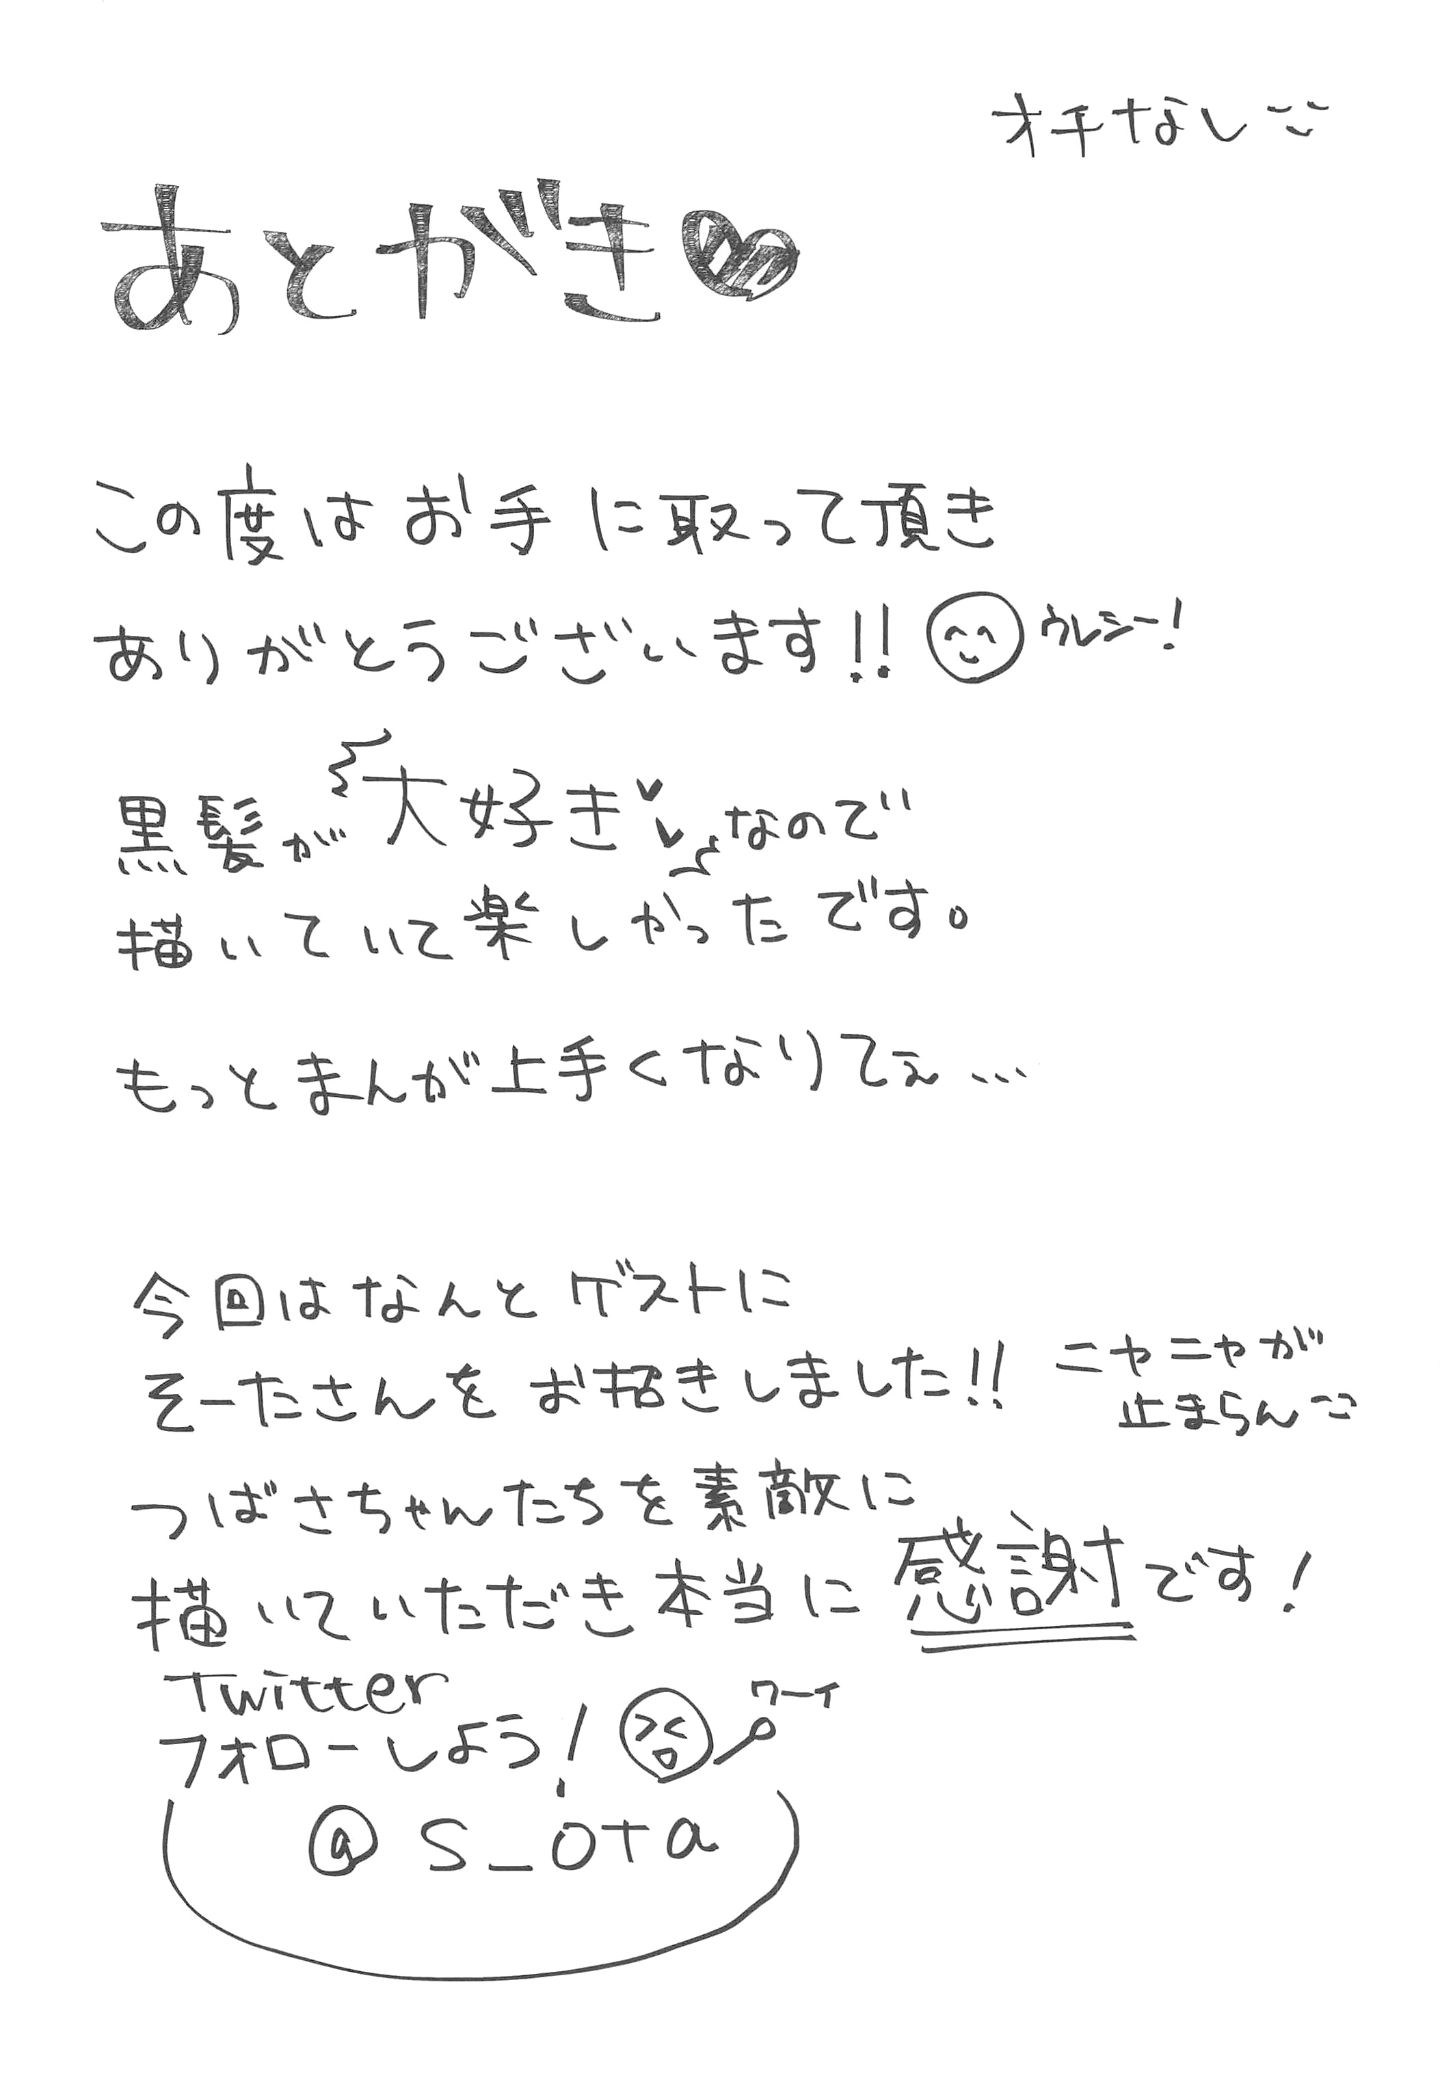 オチなし
あとがき
この度はお手に取って頂き
ありがとうございます!!
ウレシー!
黒髪が大好き♥♥なので
描いていて楽しかったです。
もっとまんが上手くなりてぇ…
今回はなんとゲストに
そーたさんをお招きしました!!
ニヤニヤが
止まらん
つばさちゃんたちを素敵に
描いていただき本当に感謝です!
Twitter
フォローしよう!
ワーイ
@s_ota